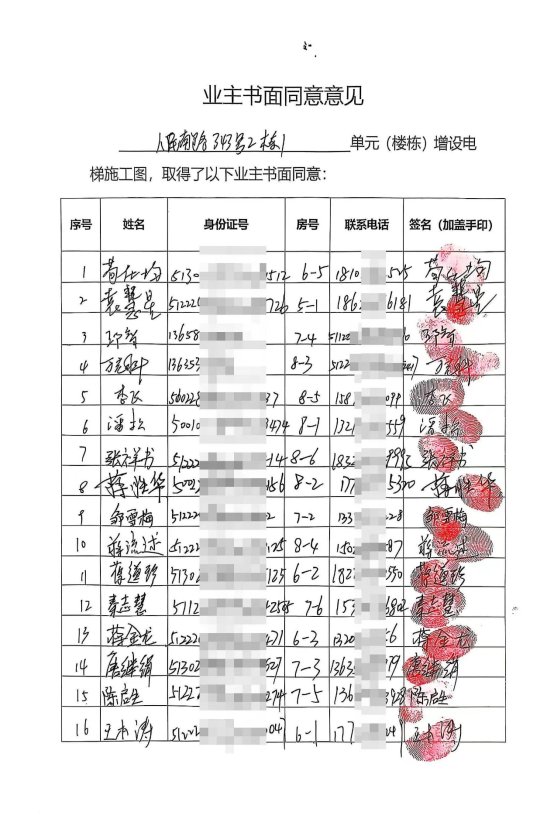 业主书面同意意见
人民南路343号2栋1 单元（楼栋）增设电
梯施工图，取得了以下业主书面同意：
序号 姓名 身份证号 房号 联系电话 签名（加盖手印）
1 苟仕均 5130 512 6-5 1810 525 苟仕均
2 袁慧星 512221 726 5-1 186 6181 袁慧星
3 邓智 13658 7-4 51122 邓智
4 136353 8-3 5122
5 李飞 500228 37 8-5 158 099 李飞
6 潘松 50010 3474 8-1 1321 559 潘松
7 张祥书 51222 14 8-6 1832 9995 张祥书
8 蒋胜华 50023 156 8-2 177 5320 蒋胜华
9 邹雪梅 51222 2 7-2 133 28 邹雪梅
10 蒋流述 51222 125 8-4 150 87 蒋流述
11 蒋道珍 51302 7125 6-2 182 550 蒋道珍
12 秦志慧 5712 7-6 153 秦志慧
13 蒋金龙 512221 271 6-3 1320 56 蒋金龙
14 唐继绢 51302 327 7-3 1363 79 唐继绢
15 陈启生 51227 274 7-5 136 3928 陈启生
16 王本涛 51202 047 6-1 177 04 王本涛